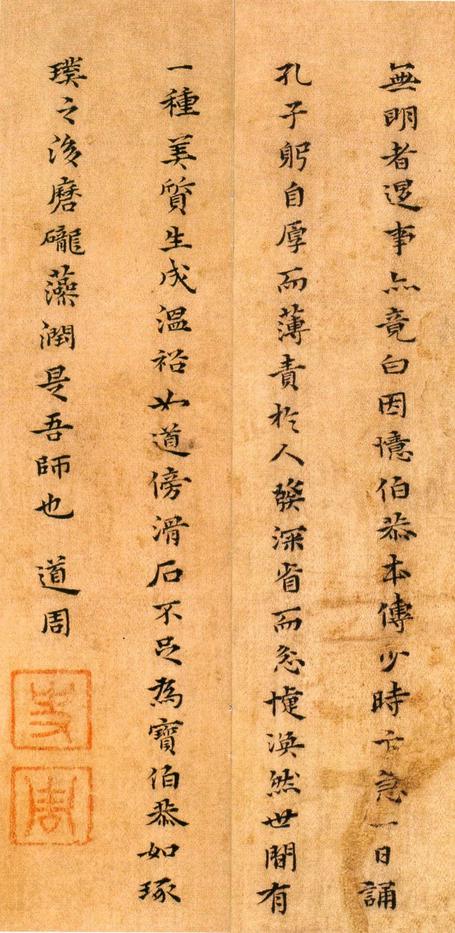 無明者遇事亦竟白因憶伯恭本傳少時卞急一日誦
孔子躬自厚而薄責於人發深省而忿懥渙然世間有
一種美質生成溫裕如道傍滑石不足為寶伯恭如琢
璞之後磨礲藻潤是吾師也 道周